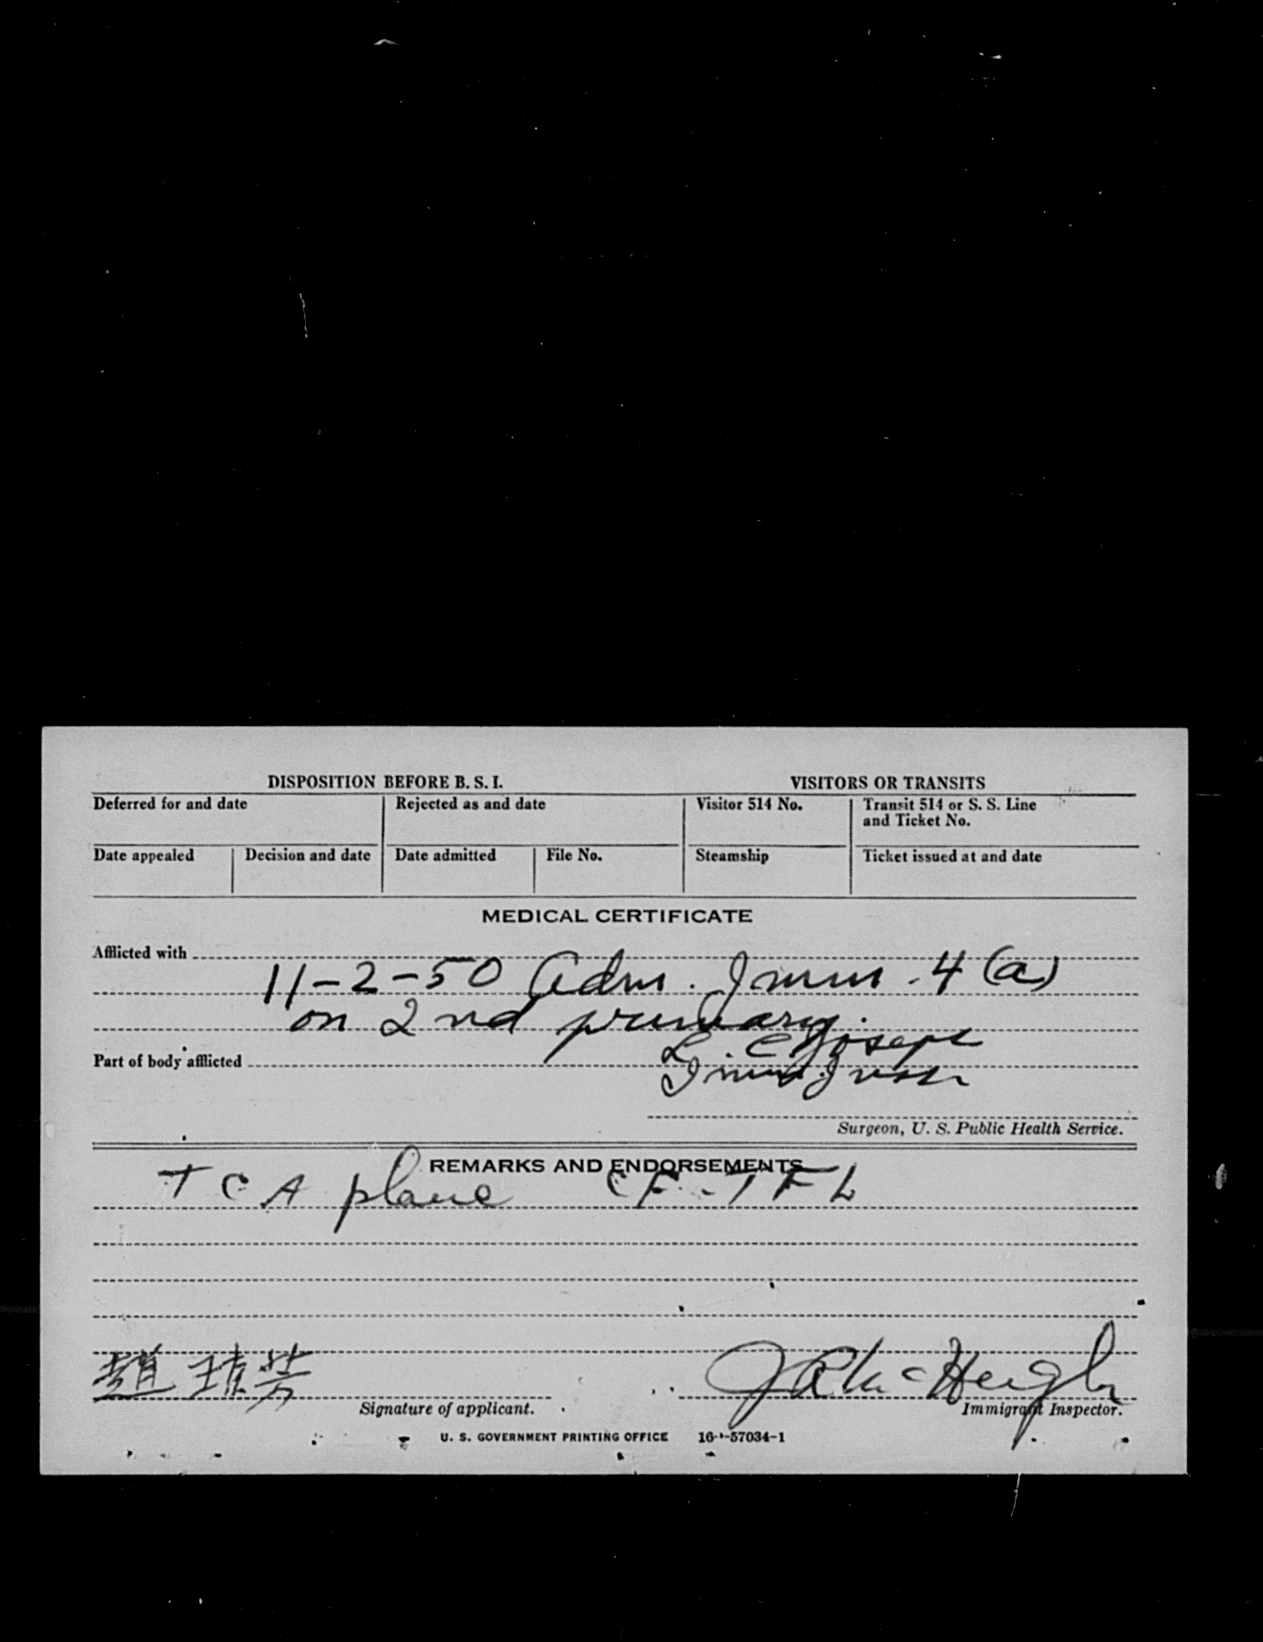 DISPOSITION BEFORE B. S. I.
VISITORS OR TRANSITS
Deferred for and date
Rejected as and date
Visitor 514 No.
Transit 514 or S. S. Line
and Ticket No.
Date appealed
Decision and date
Date admitted
File No.
Steamship
Ticket issued at and date
MEDICAL CERTIFICATE
Afflicted with
11-2-50 Adm. Imm. 4(a)
on 2nd primary.
L. C. Joseph
Part of body afflicted
Surgeon, U. S. Public Health Service.
REMARKS AND ENDORSEMENTS
TCA plane CF-TFL
趙 芳
Signature of applicant.
Immigrant Inspector.
U. S. GOVERNMENT PRINTING OFFICE 16-57034-1